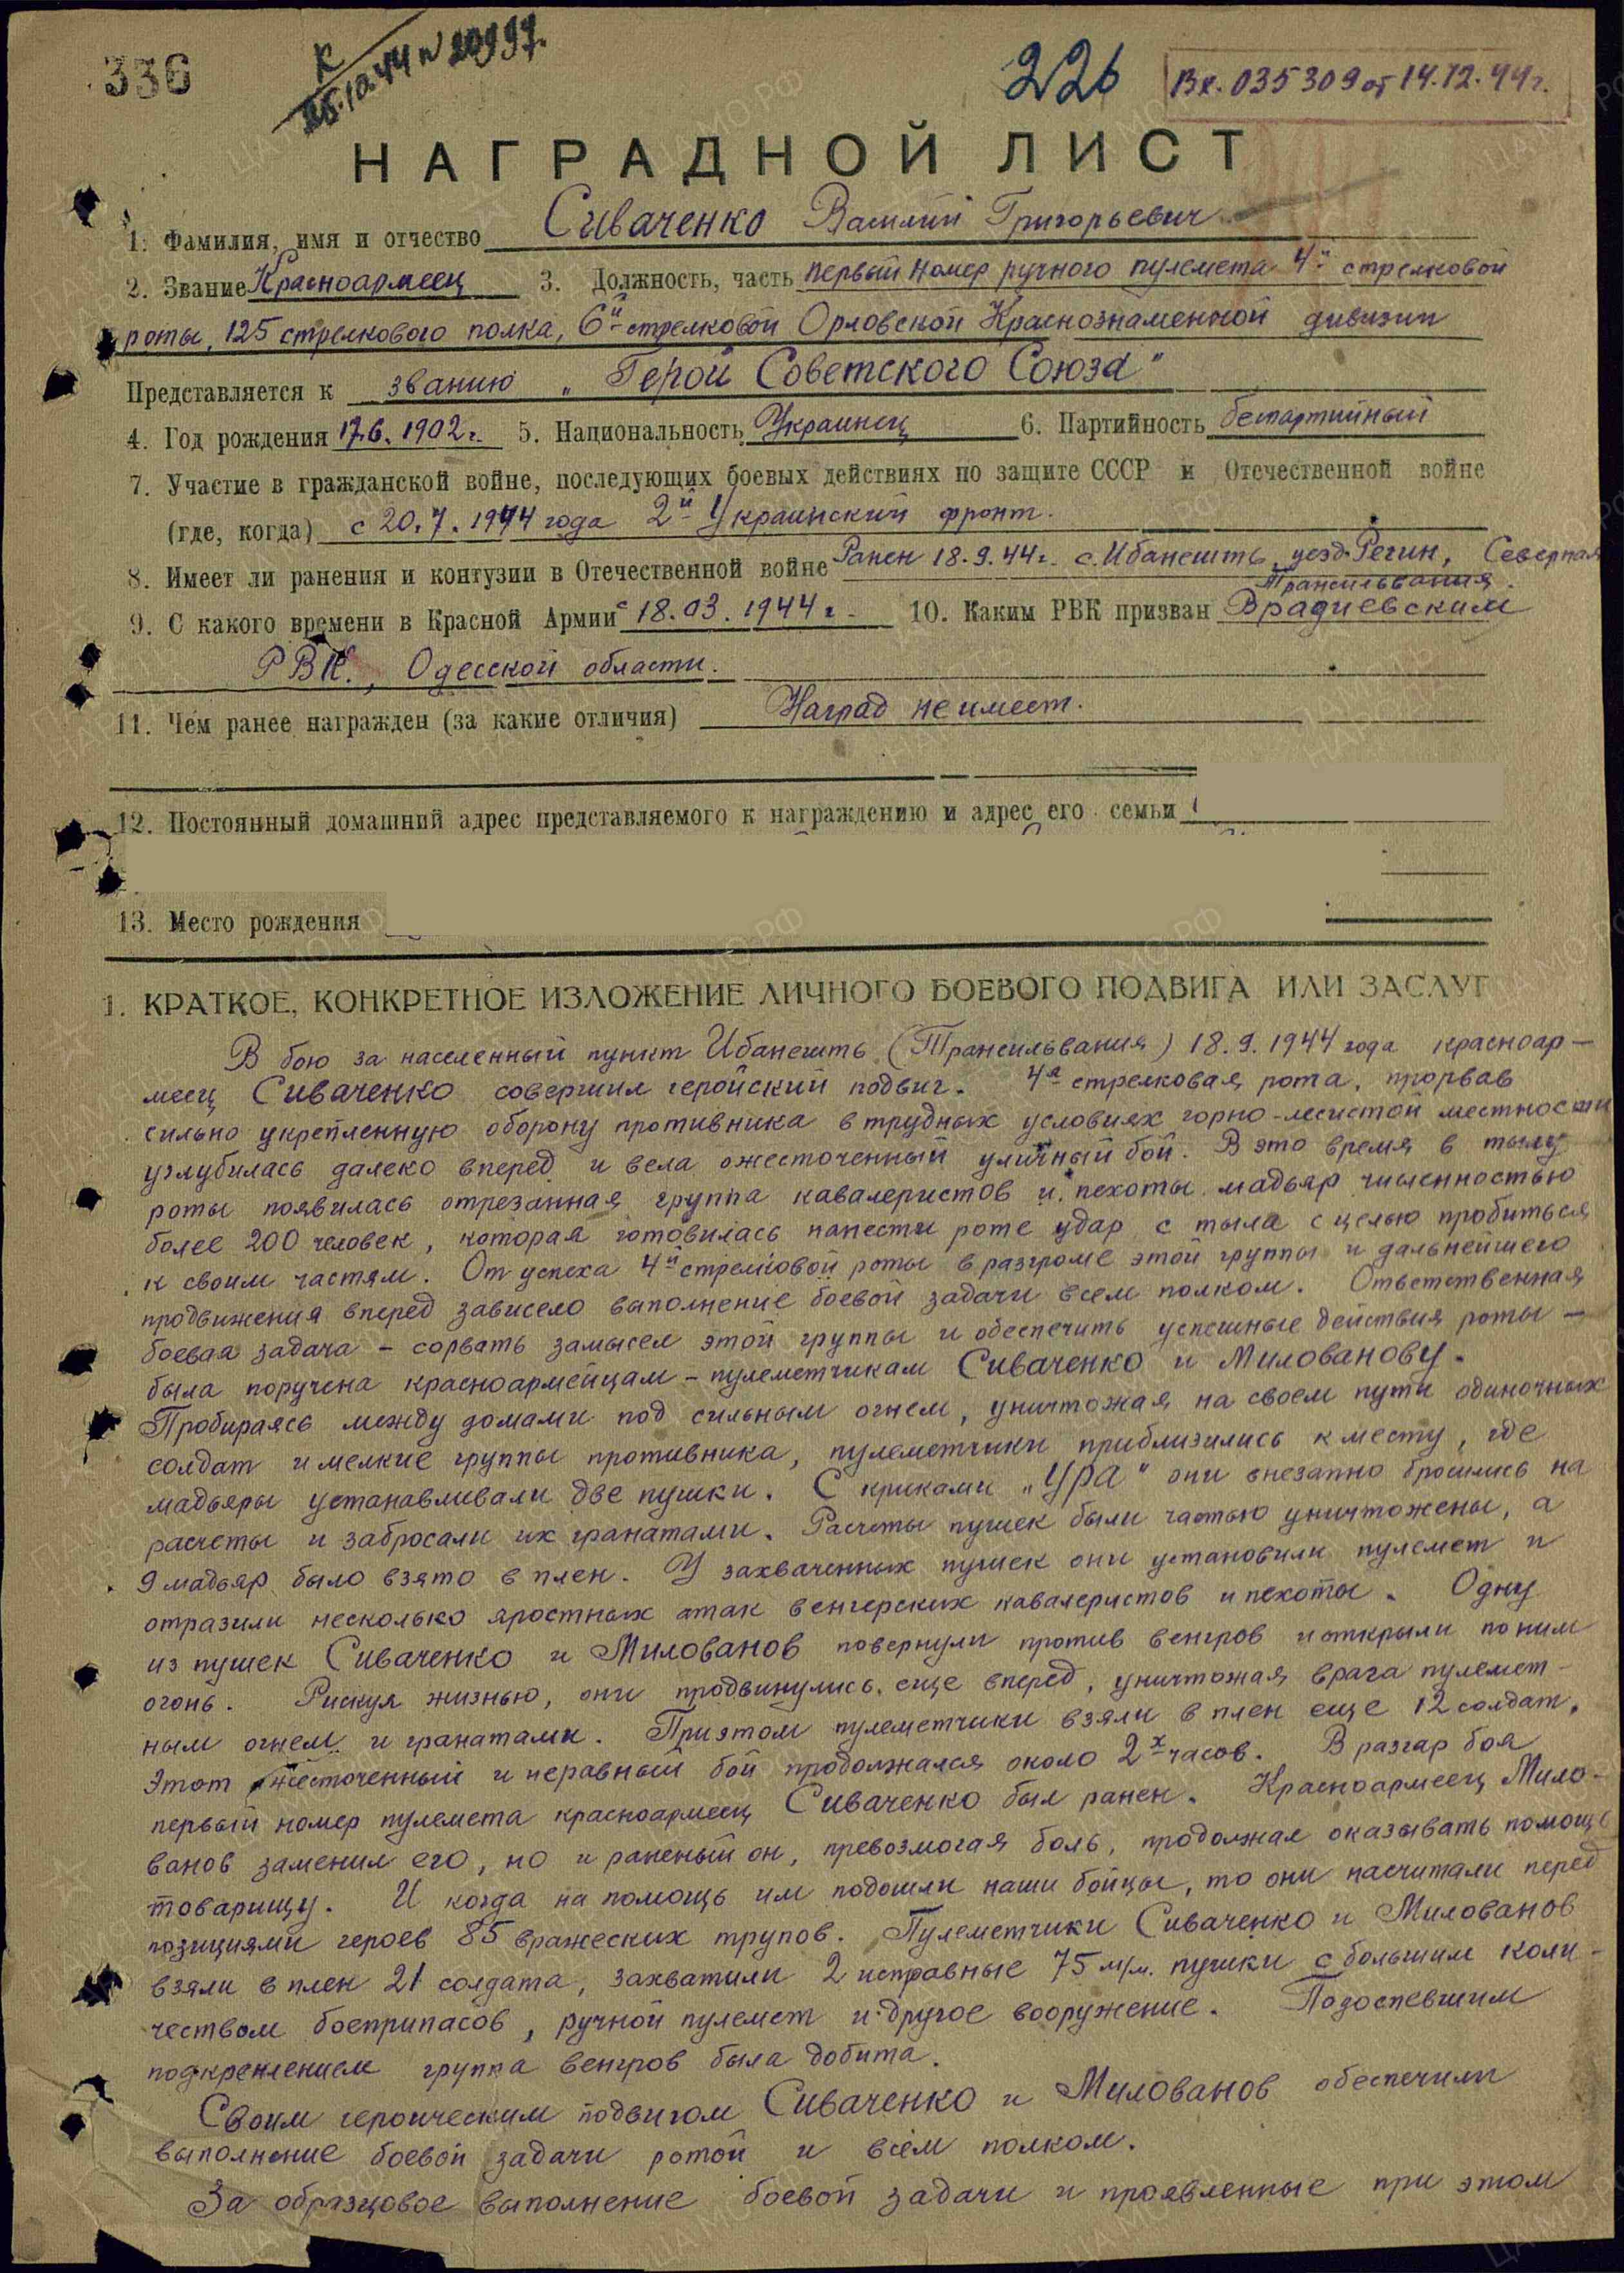 336
К
25.10.44 N 20997.
226
Вх. 035309 от 14.12.44г.
НАГРАДНОЙ ЛИСТ
1. Фамилия, имя и отчество Сиваченко Василий Григорьевич
2. Звание Красноармеец 3. Должность, часть первый номер ручного пулемета 4й стрелковой
роты, 125 стрелкового полка, 6й стрелковой Орловской Краснознаменной дивизии
Представляется к званию „Герой Советского Союза"
4. Год рождения 17.6.1902г. 5. Национальность Украинец 6. Партийность беспартийный
7. Участие в гражданской войне, последующих боевых действиях по защите СССР и Отечественной войне
(где, когда) с 20.7.1944 года 2й Украинский фронт.
8. Имеет ли ранения и контузии в Отечественной войне Ранен 18.9.44г. с. Ибанешть уезд Регин, Северная
Трансильвания.
9. С какого времени в Красной Армии с 18.03.1944г. 10. Каким РВК призван Врадиевским
РВК., Одесской области.
11. Чем ранее награжден (за какие отличия) Наград не имеет.
12. Постоянный домашний адрес представляемого к награждению и адрес его семьи
13. Место рождения
1. КРАТКОЕ, КОНКРЕТНОЕ ИЗЛОЖЕНИЕ ЛИЧНОГО БОЕВОГО ПОДВИГА ИЛИ ЗАСЛУГ
В бою за населенный пункт Ибанешть (Трансильвания) 18.9.1944 года красноар-
меец Сиваченко совершил геройский подвиг. 4я стрелковая рота, прорвав
сильно укрепленную оборону противника в трудных условиях горно-лесистой местности
углубилась далеко вперед и вела ожесточенный уличный бой. В это время в тылу
роты появилась отрезанная группа кавалеристов и пехоты мадьяр численностью
более 200 человек, которая готовилась нанести роте удар с тыла с целью пробиться
к своим частям. От успеха 4й стрелковой роты в разгроме этой группы и дальнейшего
продвижения вперед зависело выполнение боевой задачи всем полком. Ответственная
боевая задача - сорвать замысел этой группы и обеспечить успешные действия роты -
была поручена красноармейцам - пулеметчикам Сиваченко и Милованову.
Пробираясь между домами под сильным огнем, уничтожая на своем пути одиночных
солдат и мелкие группы противника, пулеметчики приблизились к месту, где
мадьяры устанавливали две пушки. С криками „Ура" они внезапно бросились на
расчеты и забросали их гранатами. Расчеты пушек были частью уничтожены, а
9 мадьяр было взято в плен. У захваченных пушек они установили пулемет и
отразили несколько яростных атак венгерских кавалеристов и пехоты. Одну
из пушек Сиваченко и Милованов повернули против венгров и открыли по ним
огонь. Рискуя жизнью, они продвинулись еще вперед, уничтожая врага пулемет-
ным огнем и гранатами. При этом пулеметчики взяли в плен еще 12 солдат.
Этот ожесточенный и неравный бой продолжался около 2х часов. В разгар боя
первый номер пулемета красноармеец Сиваченко был ранен. Красноармеец Мило-
ванов заменил его, но и раненый он, превозмогая боль, продолжал оказывать помощь
товарищу. И когда на помощь им подошли наши бойцы, то они насчитали перед
позициями героев 85 вражеских трупов. Пулеметчики Сиваченко и Милованов
взяли в плен 21 солдата, захватили 2 исправные 75 м/м. пушки с большим коли-
чеством боеприпасов, ручной пулемет и другое вооружение. Подоспевшим
подкреплением группа венгров была добита.
Своим героическим подвигом Сиваченко и Милованов обеспечили
выполнение боевой задачи ротой и всем полком.
За образцовое выполнение боевой задачи и проявленные при этом